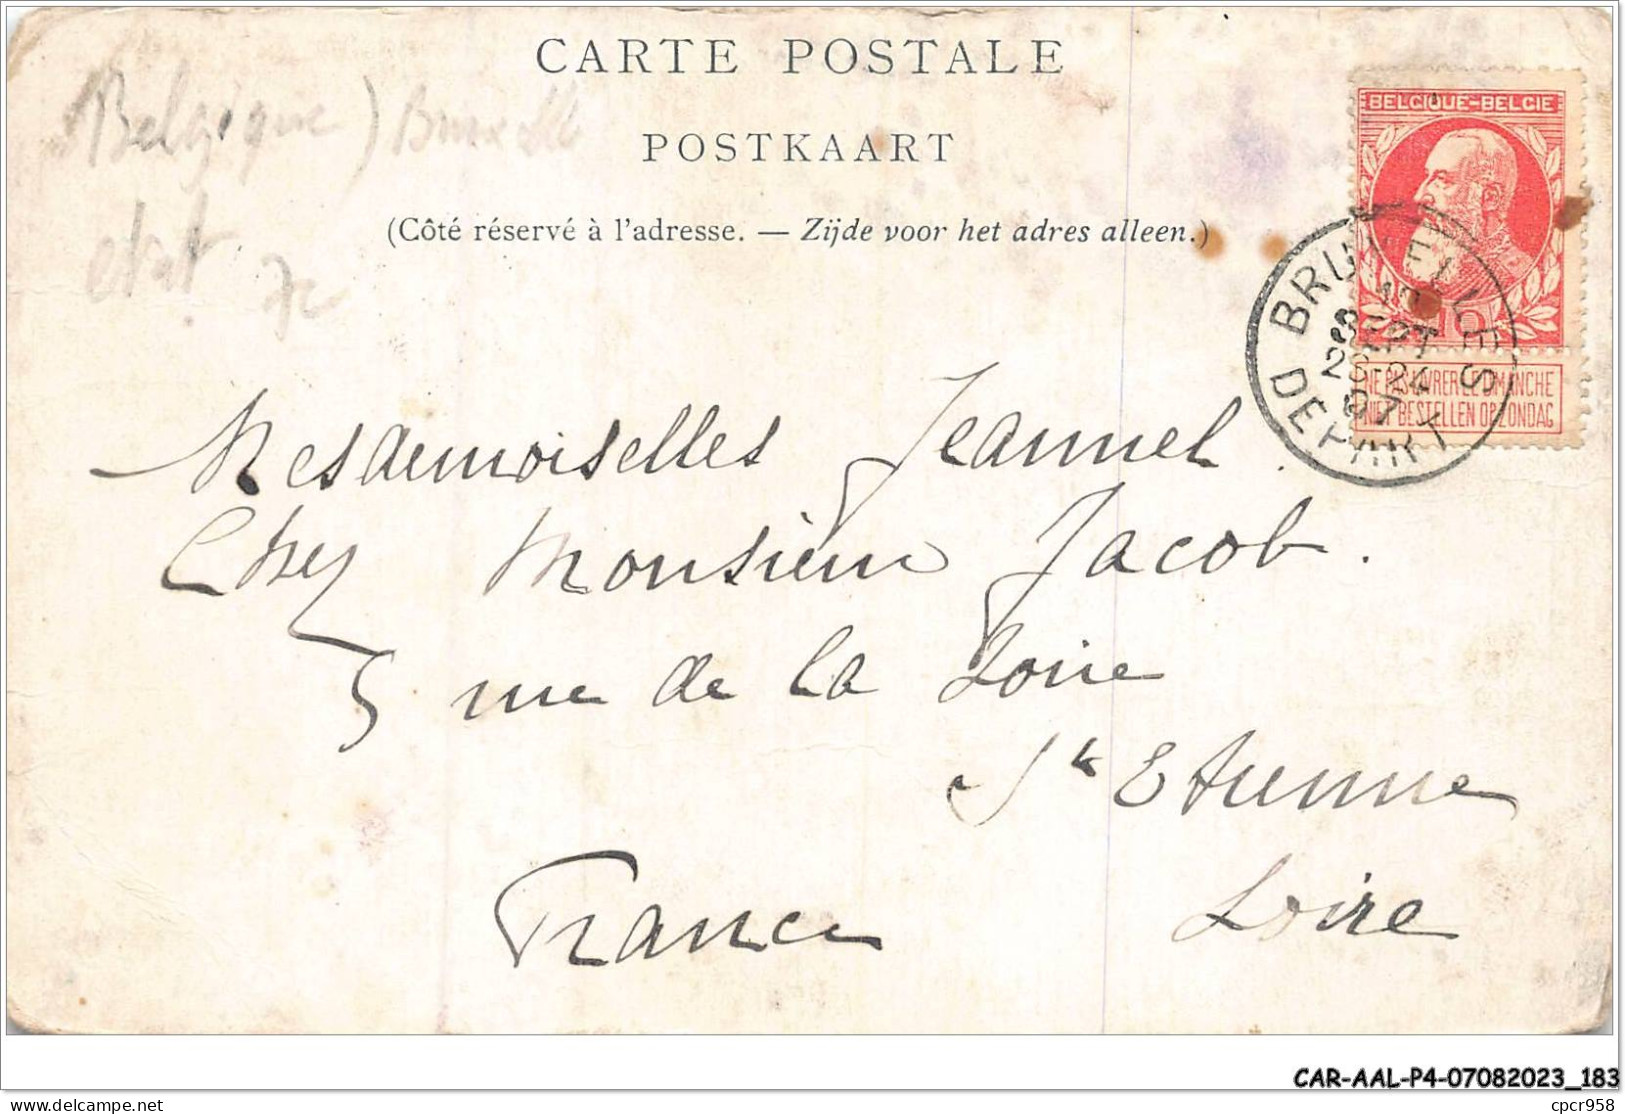 CARTE POSTALE
POSTKAART
(Côté réservé à l'adresse. — Zijde voor het adres alleen.)
Belgique)
etat
BELGIQUE-BELGIE
10
NE PAS LIVRER LE DIMANCHE
NIET BESTELLEN OP ZONDAG
BRUXELLES
SEPT
07
DEPART
Mesdemoiselles Jeannel.
Chez Monsieur Jacob.
5 rue de la Loire
St Etienne
Loire
France
CAR-AAL-P4-07082023_183
delcampe.net
cpcr958